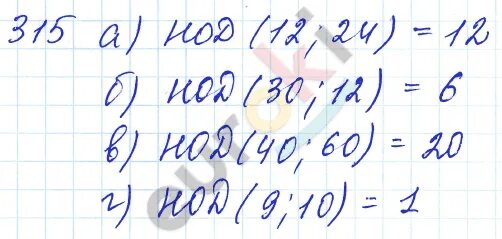 315 а) НОД (12; 24) = 12
б) НОД (30; 12) = 6
в) НОД (40; 60) = 20
г) НОД (9; 10) = 1
euroki